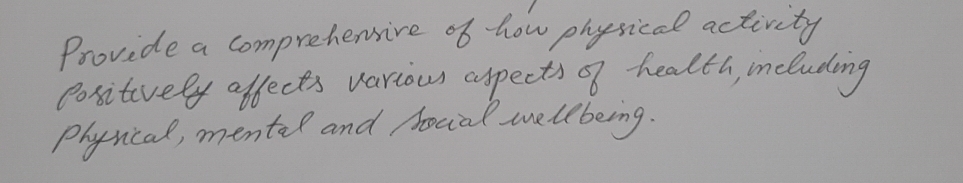 Provide a comprehensive of how physical activity
positively affects various aspects of health, including
physical, mental and social wellbeing.